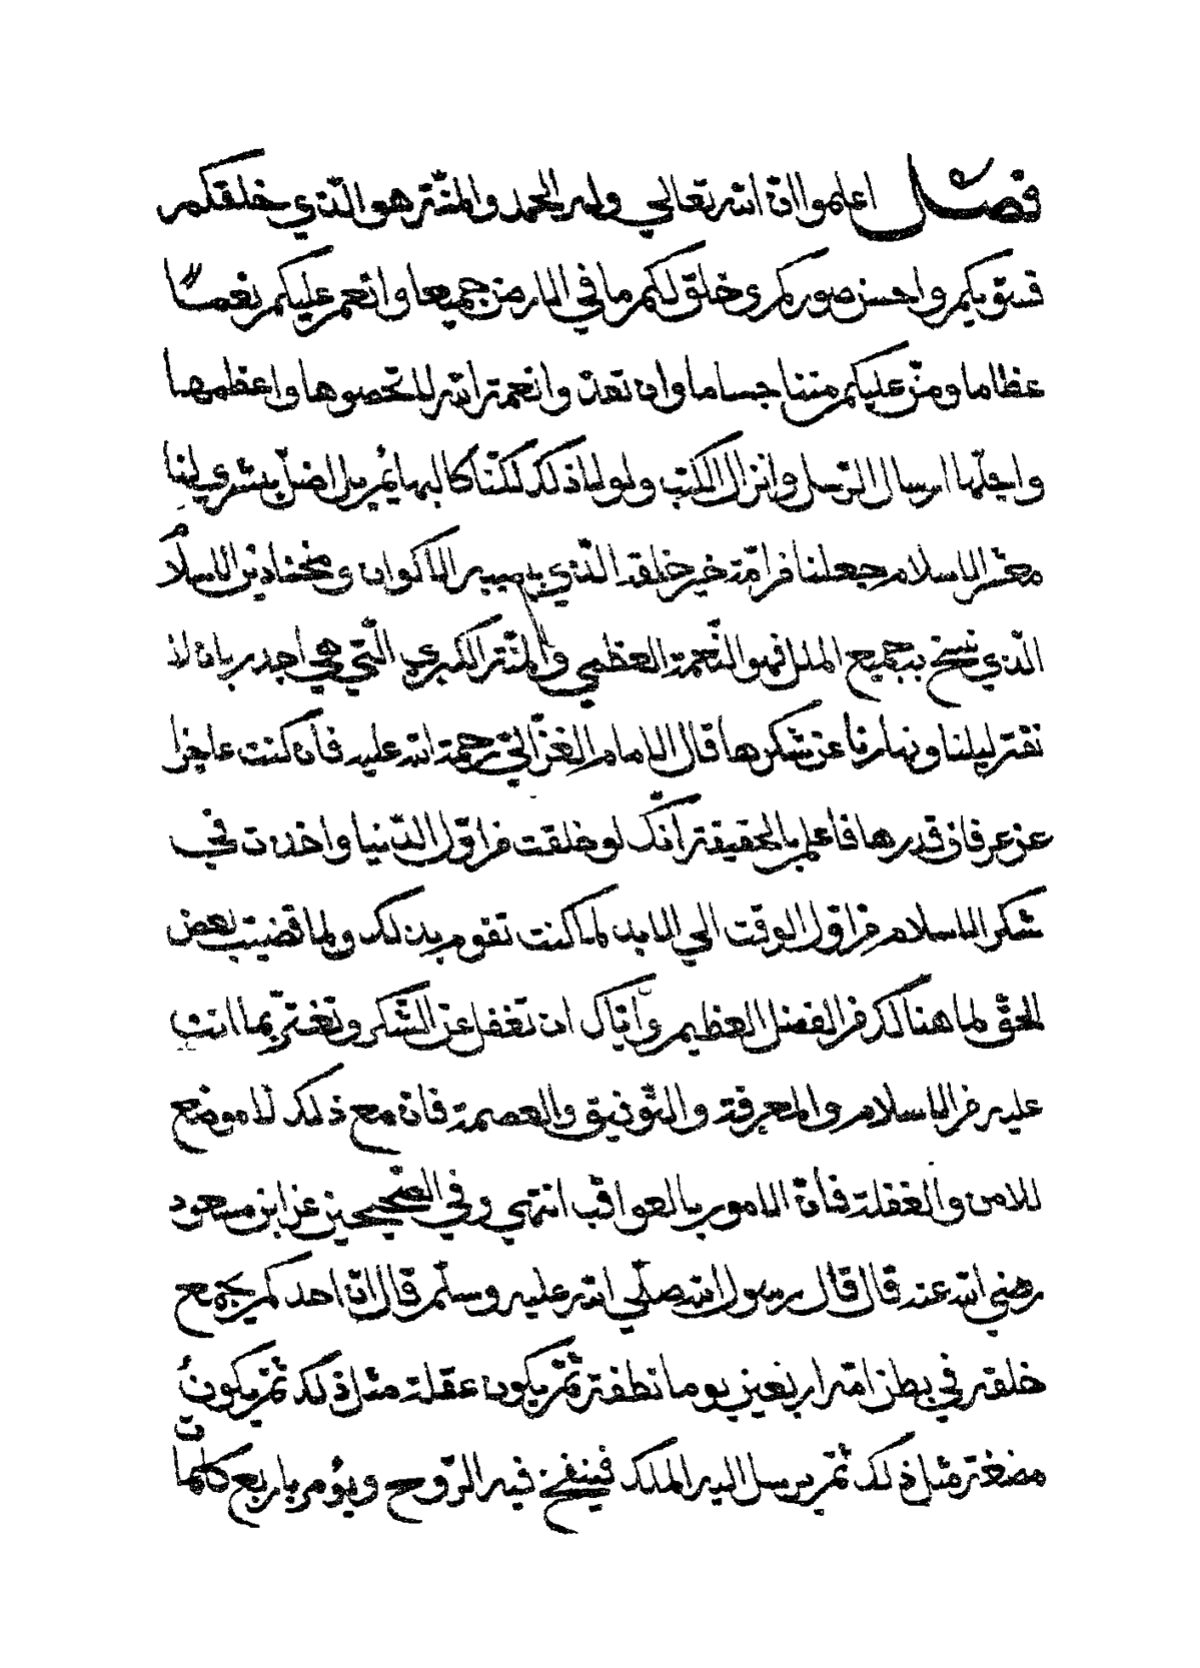 فصل اعلموا ان الله تعالى وله الحمد والمنّة هو الّذي خلقكم
فسوّيكم واحسن صوركم وخلق لكم ما في الارض جميعا وانعم عليكم نعما
عظاما ومنّ عليكم مننا جساما وان تعدّوا نعمة الله لا تحصوها واعظمها
واجلّها ارسال الرّسل وانزال الكتب ولولا ذلك لكنّا كالبهايم بل اضلّ بشرى لنا
معشر الاسلام جعلنا من امّة خير خلقه الّذي به صير الاكوان وخصّنا دين الاسلام
الّذي نسخ به جميع الملل فهو النّعمة العظمى والمنّة الكبرى الّتي هي اجدر بان لا
نفتر ليلنا ونهارنا عن شكرها قال الامام الغزّالي رحمة الله عليه فان كنت عاجزا
عن عرفان قدرها فاعلم بالحقيقة انك لو خلقت من اوّل الدّنيا واخذت في
شكر الاسلام من اوّل الوقت الى الابد لما كنت تقوم بذلك ولما قضيت بعض
الحقّ لما هنالك من الفضل العظيم وايّاك ان تغفل عن الشّكر وتغترّ بما انت
عليه من الاسلام والمعرفة والتّوفيق والعصمة فان مع ذلك لا موضع
للامن والغفلة فانّ الامور بالعواقب انتهى وفي الصّحيحين عن ابن مسعود
رضي الله عنه قال قال رسول الله صلّى الله عليه وسلّم قال انّ احدكم يجمع
خلقه في بطن امّه اربعين يوما نطفة ثمّ يكون علقة مثل ذلك ثمّ يكون
مضغة مثل ذلك ثمّ يرسل اليه الملك فينفخ فيه الرّوح ويؤمر باربع كلمات